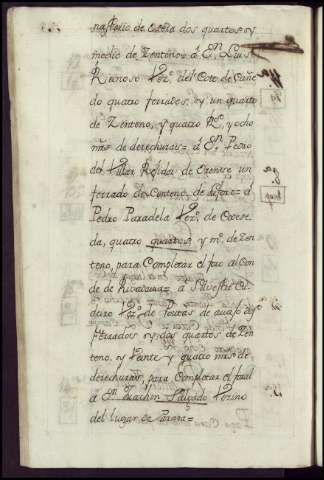 nasterio de Osera dos quartos y
medio de Zenteno = á Dn. Luis
Reinoso Vezo. del Coto de Cañe
do quatro ferrados, y un quarto
de Zenteno, y quatro Rs. y ocho
mrs. de derechuras = á Dn. Pedro
del Villar Residte. de Orense un
ferrado de Centeno de foro = á
Pedro Paradela Vezo. de
da, quatro quartos y mo. de Zen
teno, para Completar el foro al Con
de de Rivadavia = á Silvestre Cor
duro Vezo. de Poutas de avajo
ferrados y dos quartos de Zen
teno, y Veinte y quatro mrs. de
derechuras, para Completar el foral
á Dn. Juachin Salgado Vezino
del lugar de Parada =